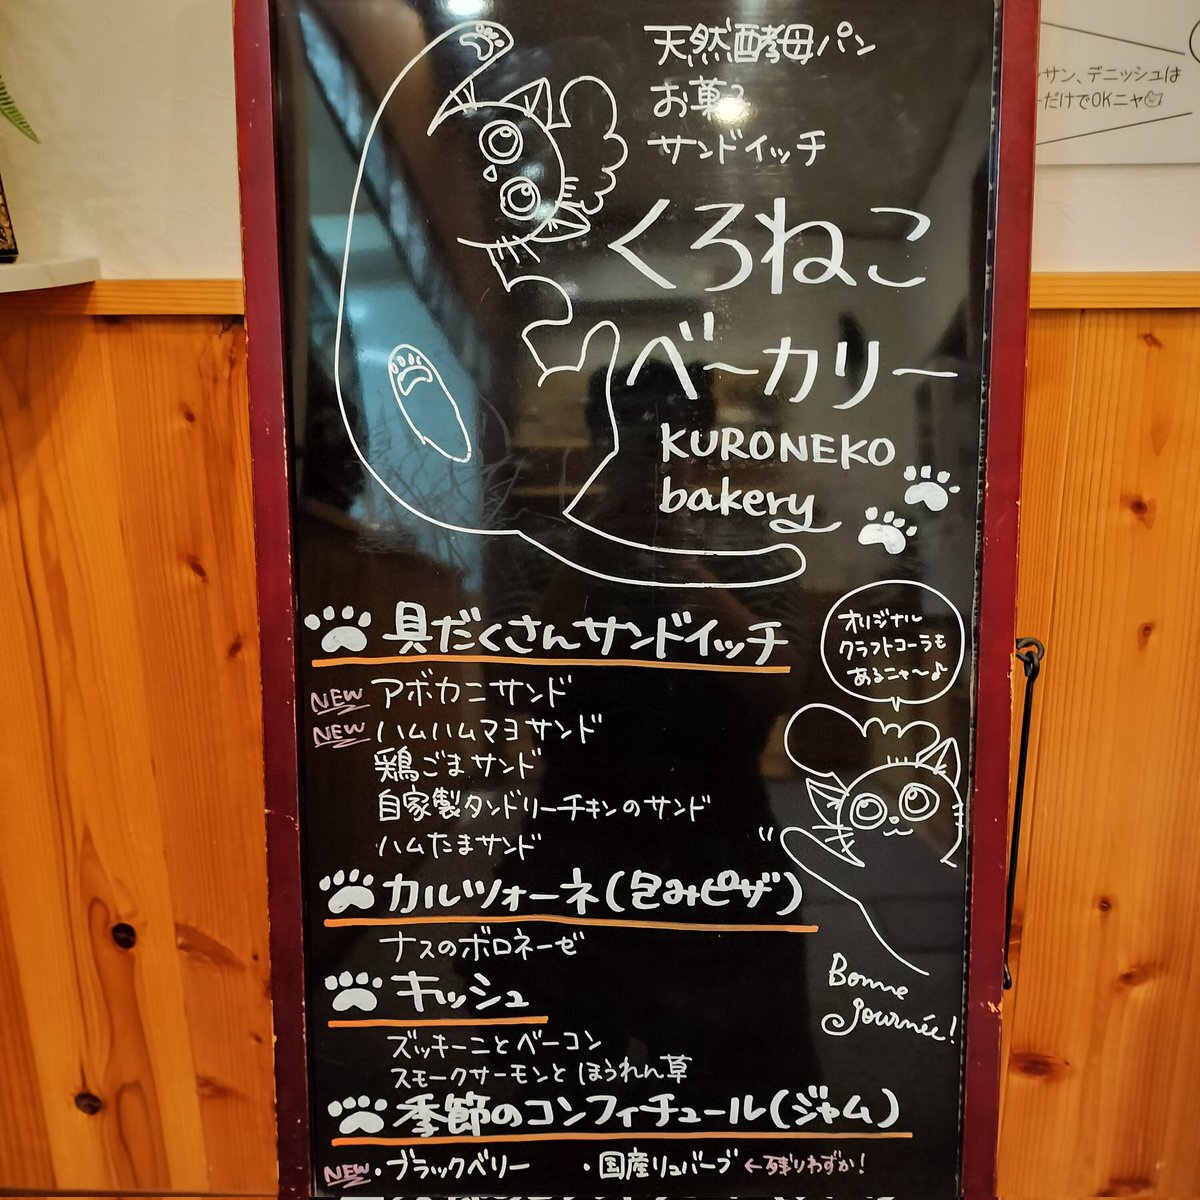 天然酵母パン
お菓子
サンドイッチ
くろねこ
ベーカリー
KURONEKO
bakery
サン、デニッシュは
だけでOKニャ
具だくさんサンドイッチ
オリジナル
クラフトコーラも
あるニャ〜♪
NEW アボカニサンド
NEW ハムハムマヨサンド
鶏ごまサンド
自家製タンドリーチキンのサンド
ハムたまサンド
カルツォーネ(包みピザ)
ナスのボロネーゼ
Bonne
journée!
キッシュ
ズッキーニとベーコン
スモークサーモンとほうれん草
季節のコンフィチュール(ジャム)
NEW ・ブラックベリー ・国産リュバーブ ←残りわずか!